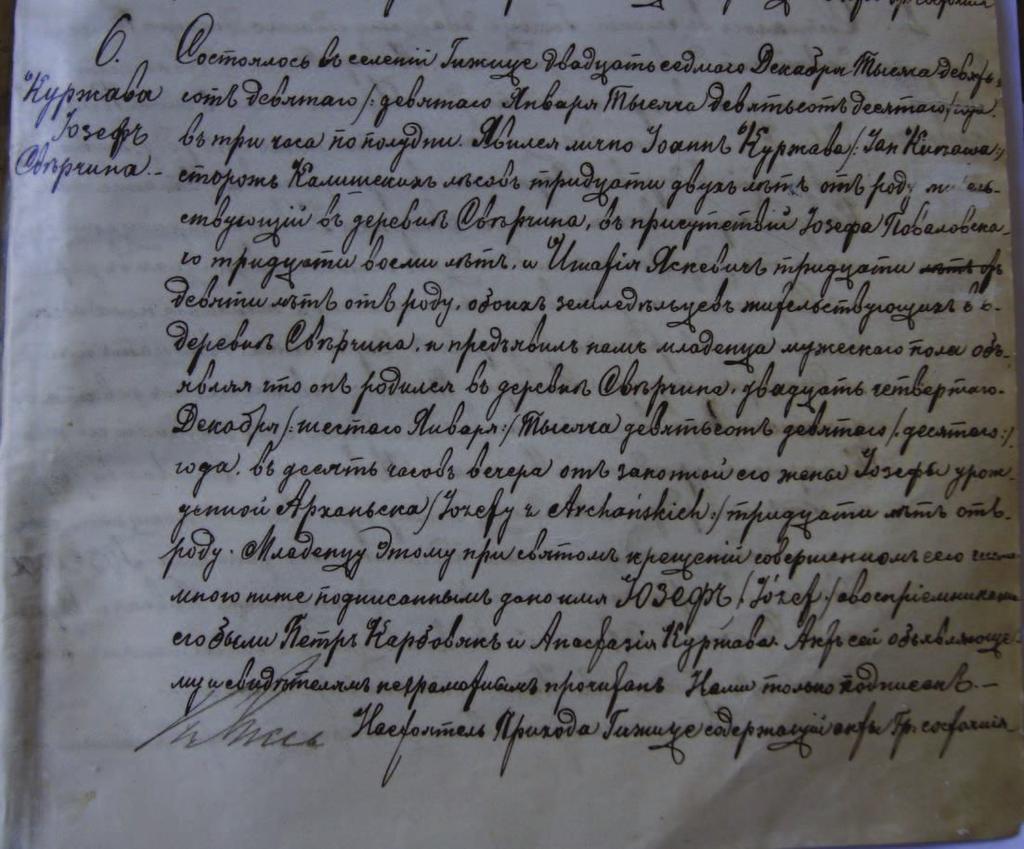 6. Состоялось въ селеніи Гижице двадцать седмаго Декабря Тысяча девять-
Куржава
Іозефъ
Свѣрчина.-
сотъ девятаго /: девятаго Января Тысяча девятьсотъ десятаго / года.
въ три часа по полудни. Явился лично Іоаннъ Куржава /: Jan Kurzawa :/
сторожъ Калишскихъ лѣсовъ тридцати двухъ лѣтъ отъ роду
ствующій въ деревнѣ Свѣрчина, въ присутствіи Іозефа
го тридцати восми лѣтъ, и Яскевичъ тридцати
девяти лѣтъ отъ роду, обоихъ земледѣльцевъ жительствующихъ в о-
деревнѣ Свѣрчина, и предъявилъ намъ младенца мужескаго пола объ-
являя что онъ родился въ деревнѣ Свѣрчина, двадцать четвертаго-
Декабря /: шестаго Января :/ Тысяча девятьсотъ девятаго /: десятаго :/
года, въ десять часовъ вечера отъ законной его жены Іозефы урож-
денной Арханьска / Józefy z Archańskich :/ тридцати лѣтъ отъ-
роду. Младенцу этому при святомъ крещеніи совершенномъ сего числа
мною ниже подписаннымъ дано имя Юзефъ / Józef :/ а воспріемниками
его были Петръ Карбовякъ и Анастазія Куржава. Актъ сей объявляюще-
му и свидѣтелямъ неграмотнымъ прочитанъ Нами только подписанъ.-
Настоятель Прихода Гижице содержащій акты Гр. состоянія